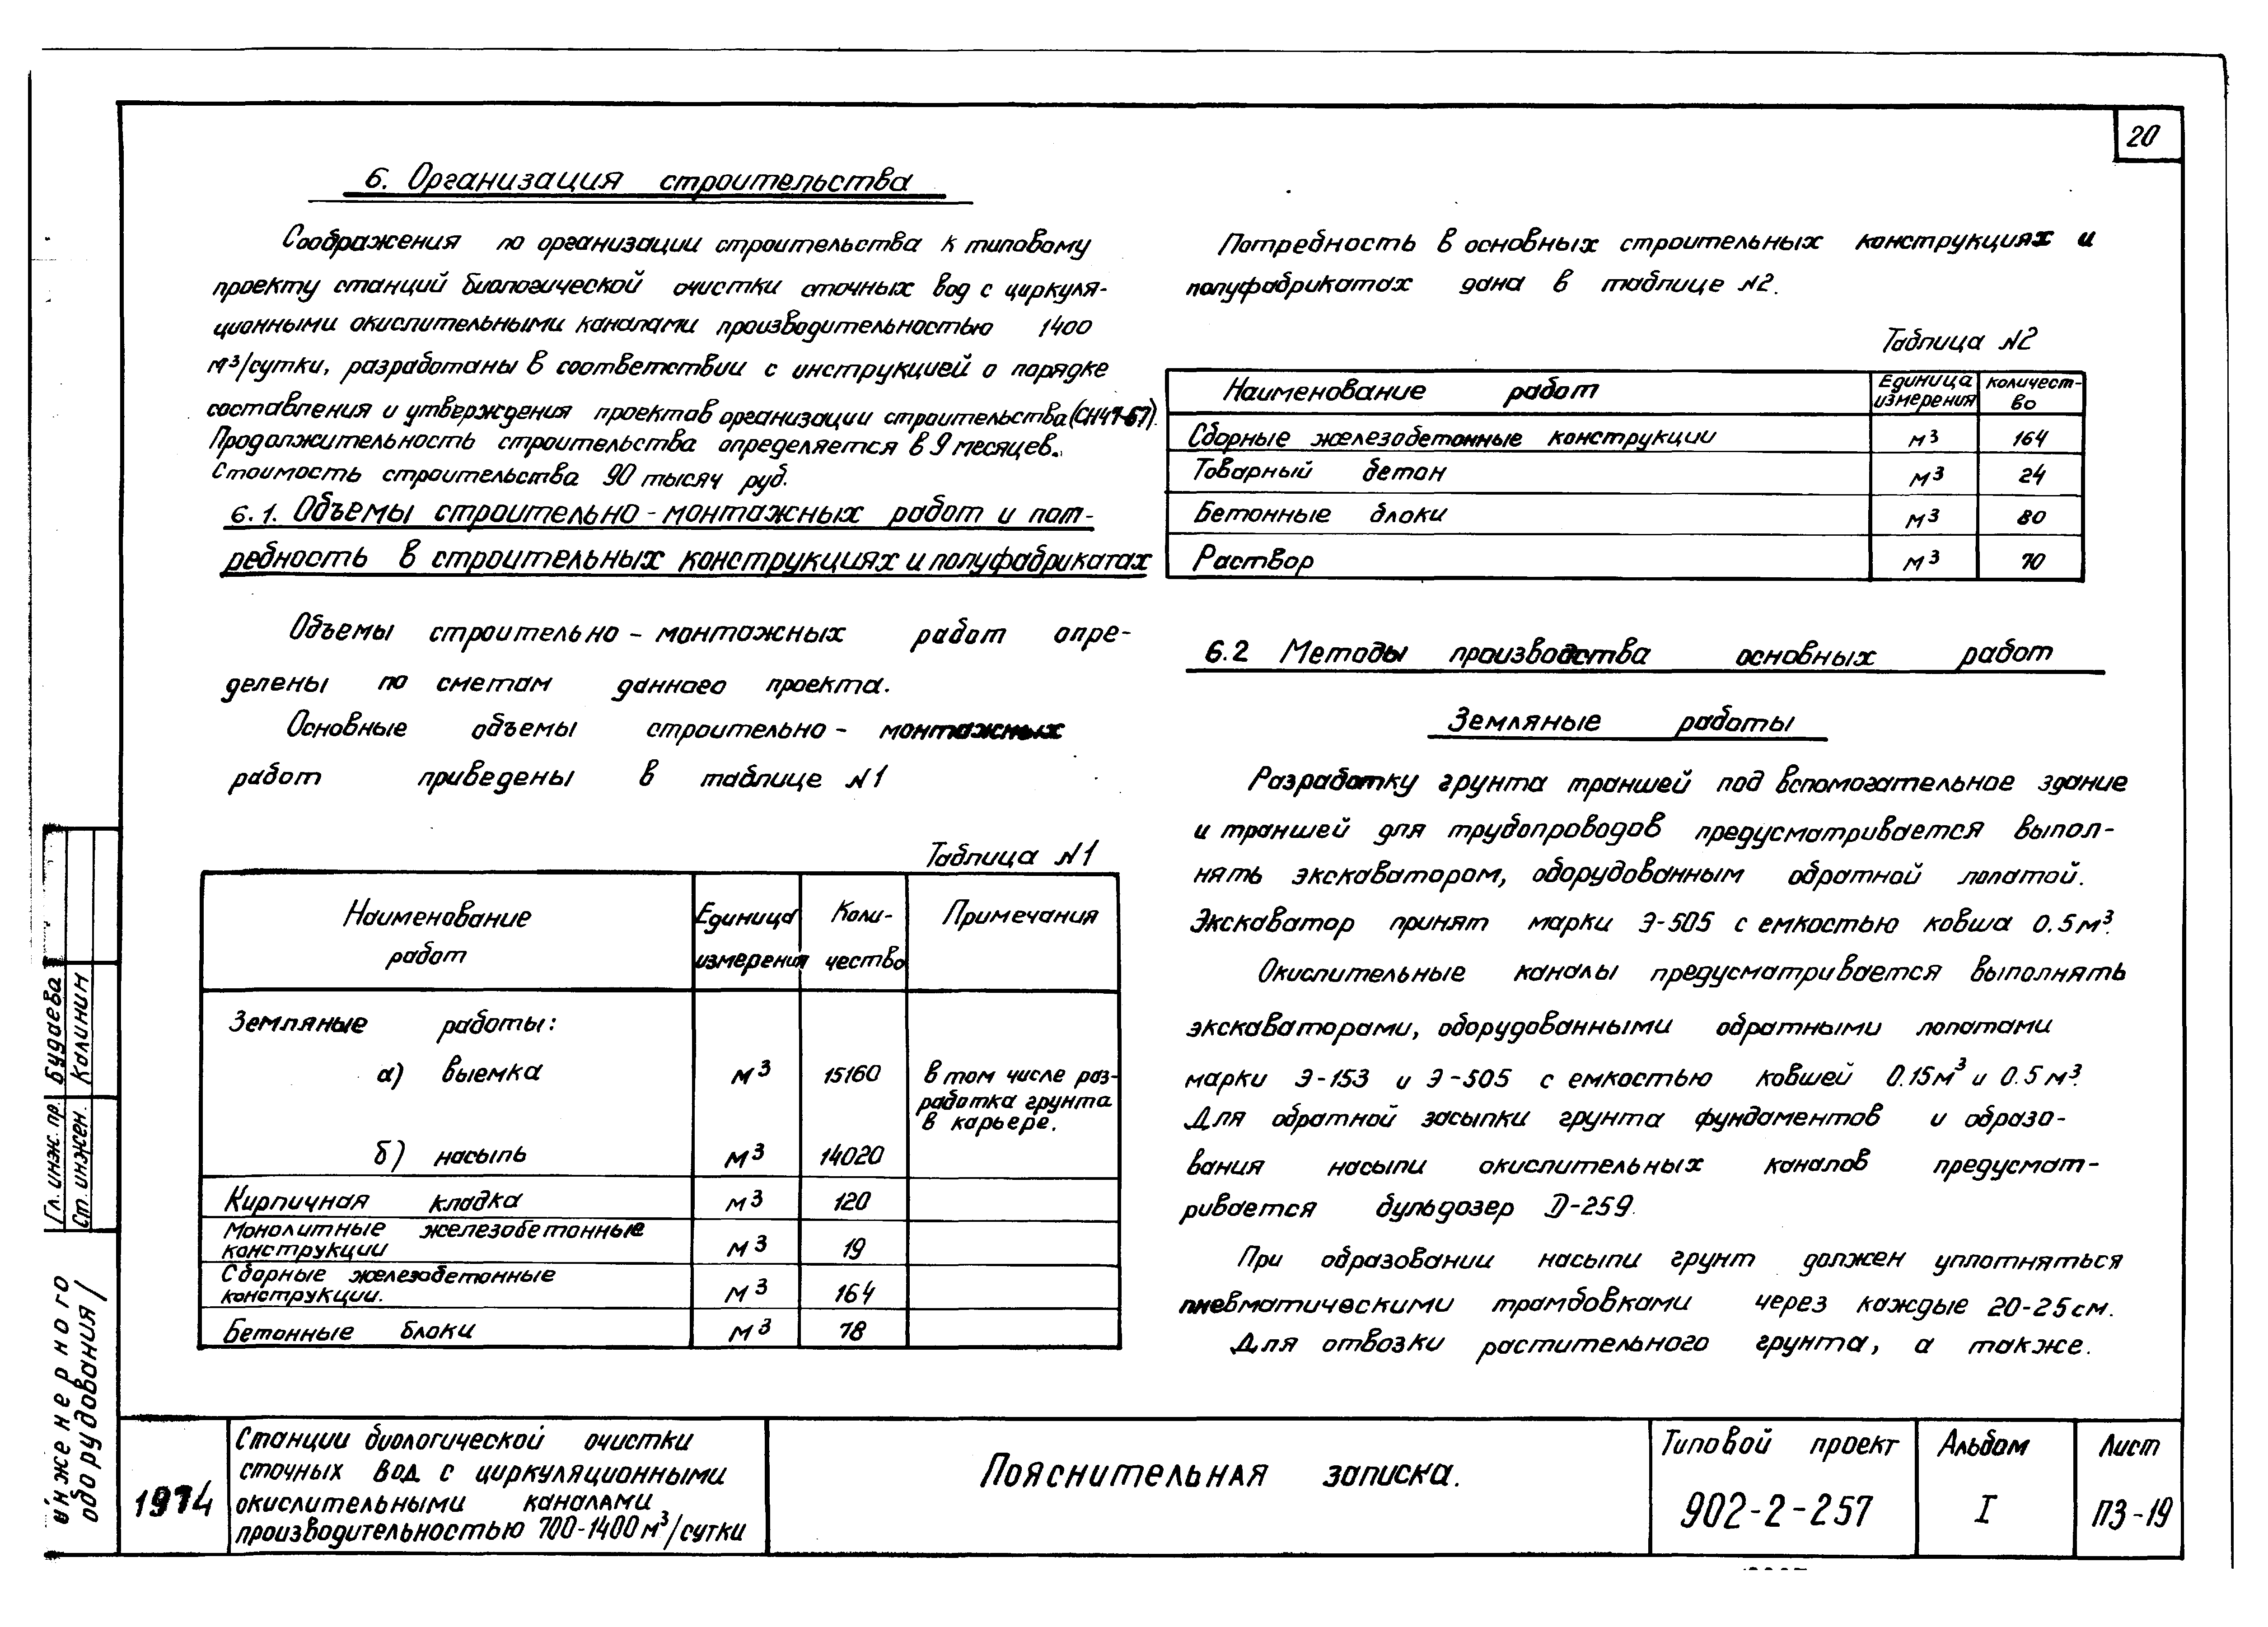 20
6. Организация строительства
Соображения по организации строительства к типовому
проекту станций биологической очистки сточных вод с циркуля-
ционными окислительными каналами производительностью 1400
м³/сутки, разработаны в соответствии с инструкцией о порядке
составления и утверждения проектов организации строительства (СН47-67).
Продолжительность строительства определяется в 9 месяцев.
Стоимость строительства 90 тысяч руб.
6.1. Объемы строительно-монтажных работ и пот-
ребность в строительных конструкциях и полуфабрикатах
Объемы строительно-монтажных работ опре-
делены по сметам данного проекта.
Основные объемы строительно-монтажных
работ приведены в таблице №1
Таблица №1
Наименование работ Единица измерения Коли-чество Примечания
Земляные работы:
а) выемка м³ 15160 в том числе раз-
работка грунта
в карьере.
б) насыпь м³ 14020
Кирпичная кладка м³ 120
Монолитные железобетонные
конструкции м³ 19
Сборные железобетонные
конструкции. м³ 164
Бетонные блоки м³ 78
Потребность в основных строительных конструкциях и
полуфабрикатах дана в таблице №2.
Таблица №2
Наименование работ Единица измерения количест-во
Сборные железобетонные конструкции м³ 164
Товарный бетон м³ 24
Бетонные блоки м³ 80
Раствор м³ 70
6.2 Методы производства основных работ
Земляные работы
Разработку грунта траншей под вспомогательное здание
и траншей для трубопроводов предусматривается выпол-
нять экскаватором, оборудованным обратной лопатой.
Экскаватор принят марки Э-505 с емкостью ковша 0.5м³.
Окислительные каналы предусматривается выполнять
экскаваторами, оборудованными обратными лопатами
марки Э-153 и Э-505 с емкостью ковшей 0.15м³ и 0.5м³.
Для обратной засыпки грунта фундаментов и образо-
вания насыпи окислительных каналов предусмат-
ривается бульдозер Д-259.
При образовании насыпи грунт должен уплотняться
пневматическими трамбовками через каждые 20-25см.
Для отвозки растительного грунта, а также.
Гл. инж. пр. Будаева
Ст. инжен. Калинин
инженерного
оборудования/
1974
Станции биологической очистки
сточных вод с циркуляционными
окислительными каналами
производительностью 700-1400м³/сутки
Пояснительная записка.
Типовой проект
902-2-257
Альбом
I
Лист
ПЗ-19